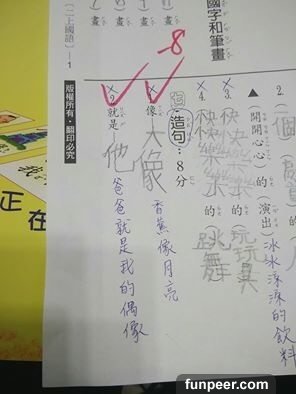 國字和筆畫
畫
畫
-8
2. 一個
冰冰涼涼的飲料
▲(開開心心)的(演出)
3. 快快樂樂的玩具
4. 快快樂樂的跳舞
造句：8分
像 大像
香蕉像月亮
2. 就是 他
爸爸就是我的偶像
版權所有・翻印必究
(二上國語)-1
正在
funpeer.com